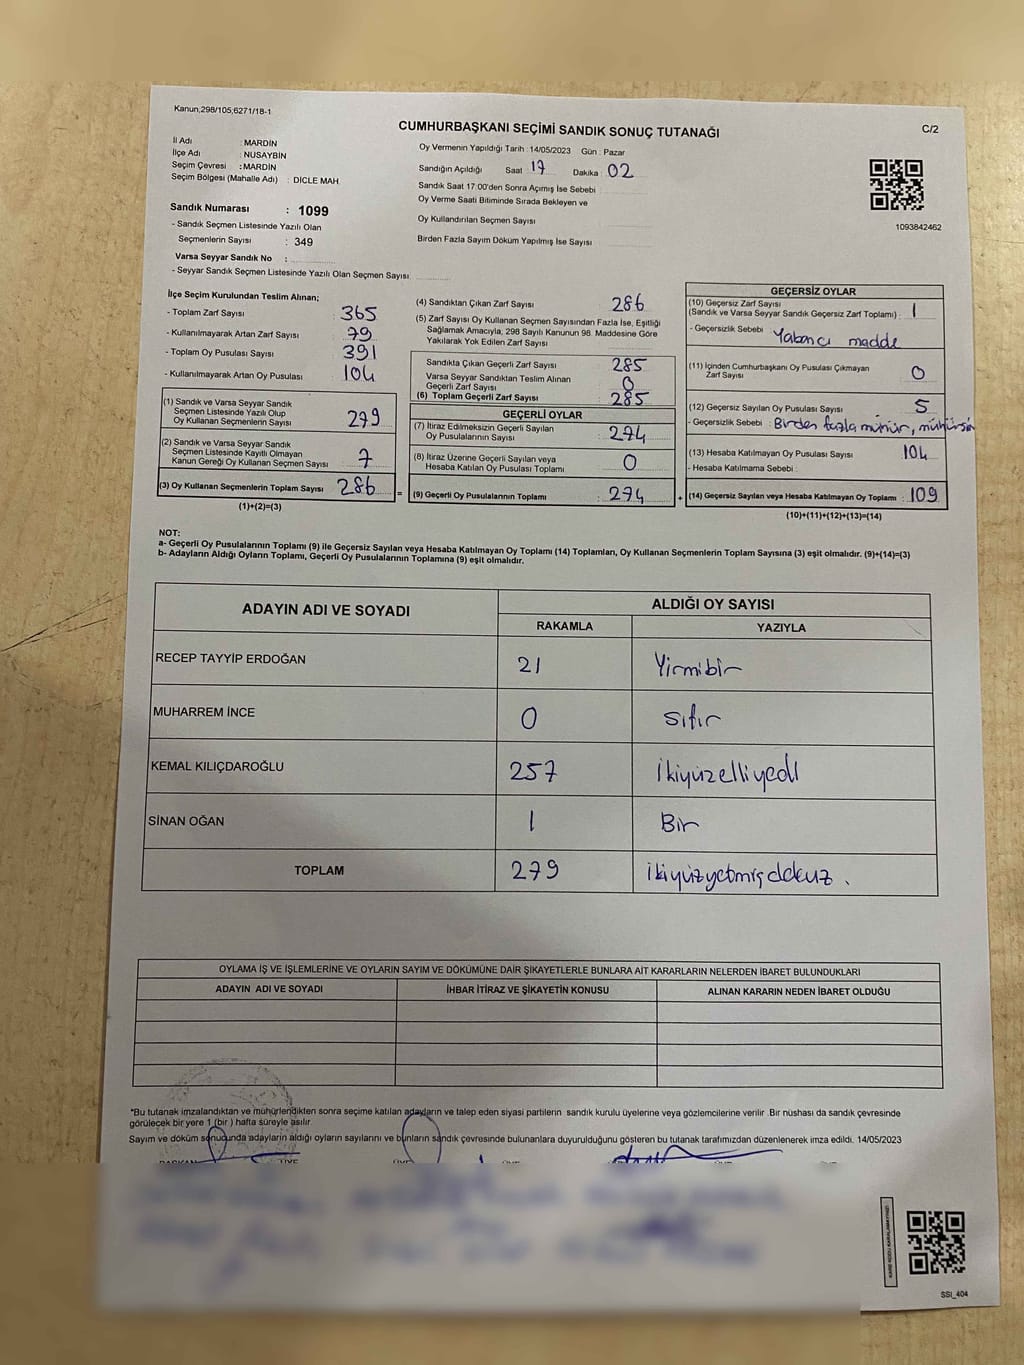 Kanun,298/105,6271/18-1
CUMHURBAŞKANI SEÇİMİ SANDIK SONUÇ TUTANAĞI
C/2
İl Adı : MARDİN
İlçe Adı : NUSAYBİN
Seçim Çevresi : MARDİN
Seçim Bölgesi (Mahalle Adı) : DİCLE MAH.
Sandık Numarası : 1099
- Sandık Seçmen Listesinde Yazılı Olan
Seçmenlerin Sayısı : 349
Varsa Seyyar Sandık No :
- Seyyar Sandık Seçmen Listesinde Yazılı Olan Seçmen Sayısı
Oy Vermenin Yapıldığı Tarih : 14/05/2023 Gün : Pazar
Sandığın Açıldığı Saat 17 Dakika : 02
Sandık Saat 17:00'den Sonra Açımış İse Sebebi
Oy Verme Saati Bitiminde Sırada Bekleyen ve
Oy Kullandırılan Seçmen Sayısı
Birden Fazla Sayım Döküm Yapılmış İse Sayısı
1093842462
İlçe Seçim Kurulundan Teslim Alınan;
- Toplam Zarf Sayısı : 365
- Kullanılmayarak Artan Zarf Sayısı : 79
- Toplam Oy Pusulası Sayısı : 391
- Kullanılmayarak Artan Oy Pusulası : 104
(1) Sandık ve Varsa Seyyar Sandık
Seçmen Listesinde Yazılı Olup
Oy Kullanan Seçmenlerin Sayısı : 279
(2) Sandık ve Varsa Seyyar Sandık
Seçmen Listesinde Kayıtlı Olmayan
Kanun Gereği Oy Kullanan Seçmen Sayısı : 7
(3) Oy Kullanan Seçmenlerin Toplam Sayısı : 286
(1)+(2)=(3)
(4) Sandıktan Çıkan Zarf Sayısı : 286
(5) Zarf Sayısı Oy Kullanan Seçmen Sayısından Fazla İse, Eşitliği
Sağlamak Amacıyla, 298 Sayılı Kanunun 98. Maddesine Göre
Yakılarak Yok Edilen Zarf Sayısı
Sandıkta Çıkan Geçerli Zarf Sayısı : 285
Varsa Seyyar Sandıktan Teslim Alınan
Geçerli Zarf Sayısı : 0
(6) Toplam Geçerli Zarf Sayısı : 285
GEÇERLİ OYLAR
(7) İtiraz Edilmeksizin Geçerli Sayılan
Oy Pusulalarının Sayısı : 274
(8) İtiraz Üzerine Geçerli Sayılan veya
Hesaba Katılan Oy Pusulası Toplamı : 0
= (9) Geçerli Oy Pusulalarının Toplamı : 274
GEÇERSİZ OYLAR
(10) Geçersiz Zarf Sayısı
(Sandık ve Varsa Seyyar Sandık Geçersiz Zarf Toplamı) : 1
- Geçersizlik Sebebi : Yabancı madde
(11) İçinden Cumhurbaşkanı Oy Pusulası Çıkmayan
Zarf Sayısı : 0
(12) Geçersiz Sayılan Oy Pusulası Sayısı : 5
- Geçersizlik Sebebi : Birden fazla mühür,
(13) Hesaba Katılmayan Oy Pusulası Sayısı : 104
- Hesaba Katılmama Sebebi :
+ (14) Geçersiz Sayılan veya Hesaba Katılmayan Oy Toplamı : 109
(10)+(11)+(12)+(13)=(14)
NOT:
a- Geçerli Oy Pusulalarının Toplamı (9) ile Geçersiz Sayılan veya Hesaba Katılmayan Oy Toplamı (14) Toplamları, Oy Kullanan Seçmenlerin Toplam Sayısına (3) eşit olmalıdır. (9)+(14)=(3)
b- Adayların Aldığı Oyların Toplamı, Geçerli Oy Pusulalarının Toplamına (9) eşit olmalıdır.
ADAYIN ADI VE SOYADI
ALDIĞI OY SAYISI
RAKAMLA YAZIYLA
RECEP TAYYİP ERDOĞAN 21 Yirmibir
MUHARREM İNCE 0 sıfır
KEMAL KILIÇDAROĞLU 257 ikiyüzelliyedi
SİNAN OĞAN 1 Bir
TOPLAM 279 ikiyüzyetmişdokuz.
OYLAMA İŞ VE İŞLEMLERİNE VE OYLARIN SAYIM VE DÖKÜMÜNE DAİR ŞİKAYETLERLE BUNLARA AİT KARARLARIN NELERDEN İBARET BULUNDUKLARI
ADAYIN ADI VE SOYADI İHBAR İTİRAZ VE ŞİKAYETİN KONUSU ALINAN KARARIN NEDEN İBARET OLDUĞU
*Bu tutanak imzalandıktan ve mühürlendikten sonra seçime katılan adayların ve talep eden siyasi partilerin sandık kurulu üyelerine veya gözlemcilerine verilir. Bir nüshası da sandık çevresinde
görülecek bir yere 1 (bir ) hafta süreyle asılır.
Sayım ve döküm sonucunda adayların aldığı oyların sayılarını ve bunların sandık çevresinde bulunanlara duyurulduğunu gösteren bu tutanak tarafımızdan düzenlenerek imza edildi. 14/05/2023
SSI_404